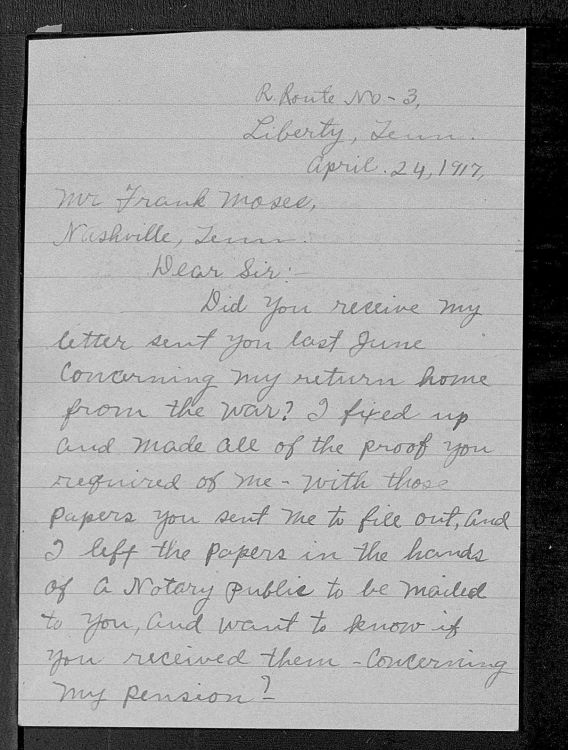 R. Route No - 3,
Liberty, Tenn.
April. 24, 1917,
Mr Frank Moses,
Nashville, Tenn.
Dear Sir:-
Did you receive my
letter sent you last June
Concerning my return home
from the war? I fixed up
and made all of the proof you
required of me - with those
papers you sent me to fill out, and
I left the papers in the hands
of a Notary public to be mailed
to you, and want to know if
you received them - Concerning
my pension?